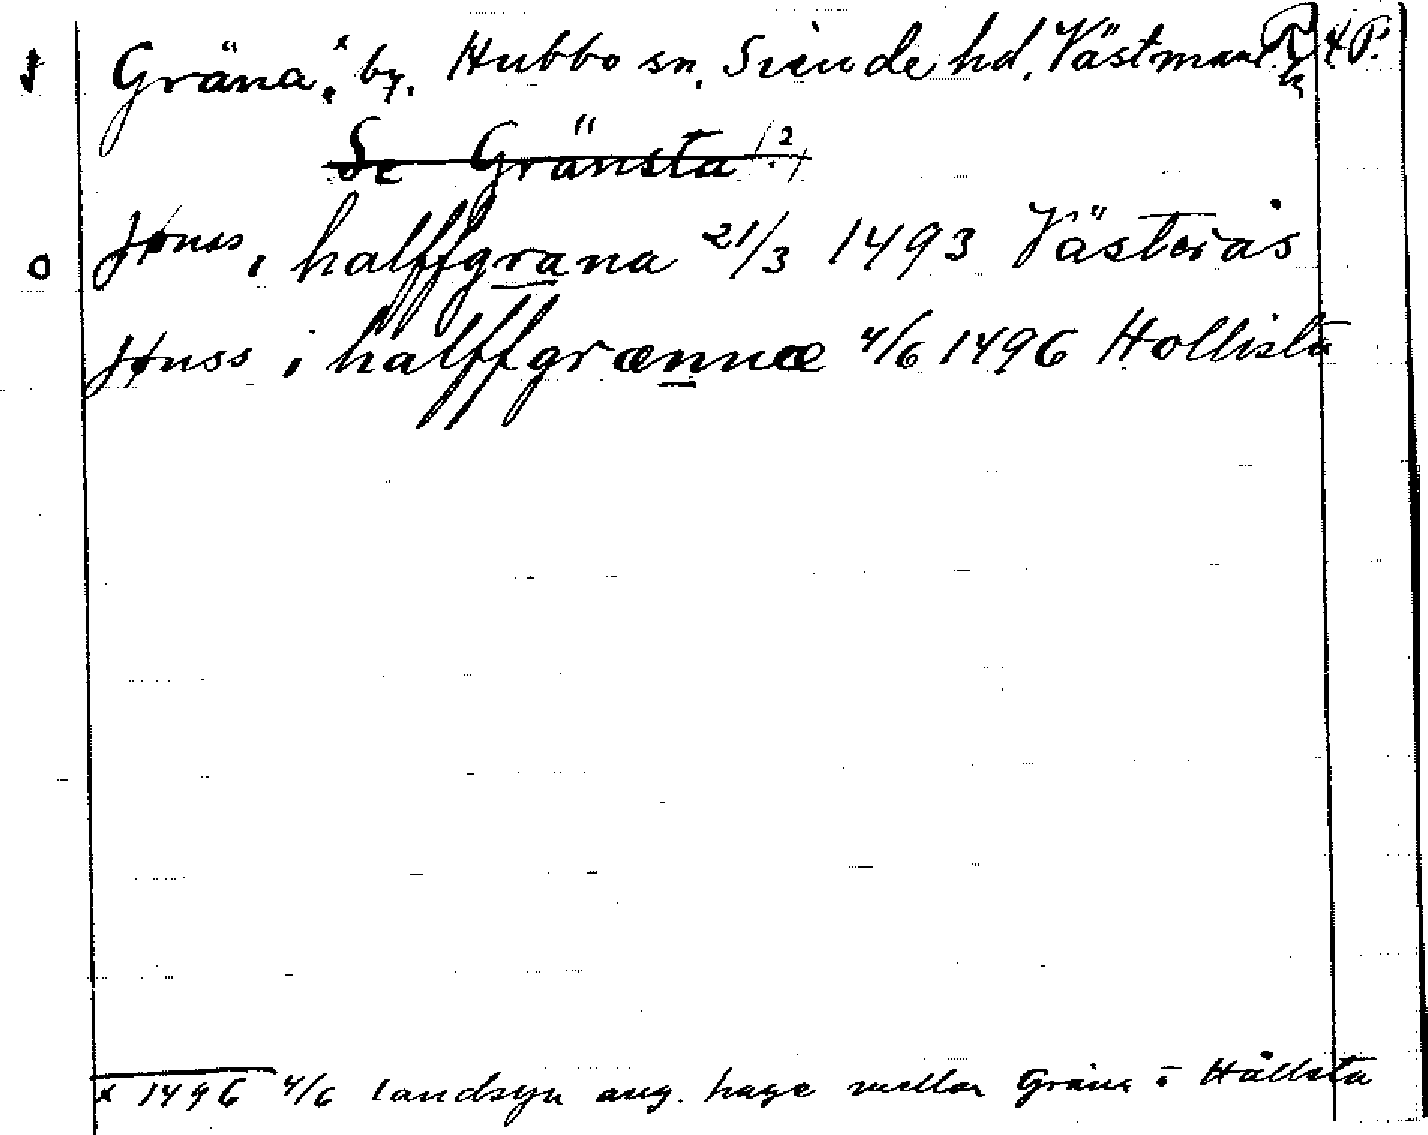 Gräna, x by. Hubbo sn, Siende hd, Västmanl. 4 P.
Se Gränsta
Jønss i halffgrana 21/3 1493 Västerås
Jønss i halffgrænnæ 4/6 1496 Hollista
x 1496 4/6 landsyn ang. hage mellan Gräna o Hållsta